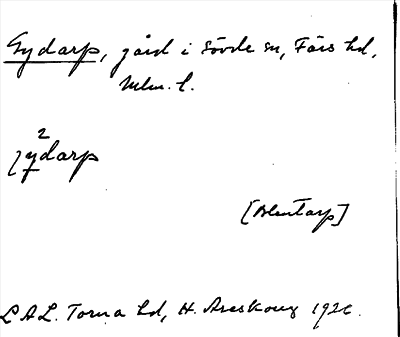 Gydarp, gård i Sövde sn, Färs hd,
Mlm. l.
2
jydarp
[Blentarp]
L.A.L. Torna hd, H. Areskoug 192